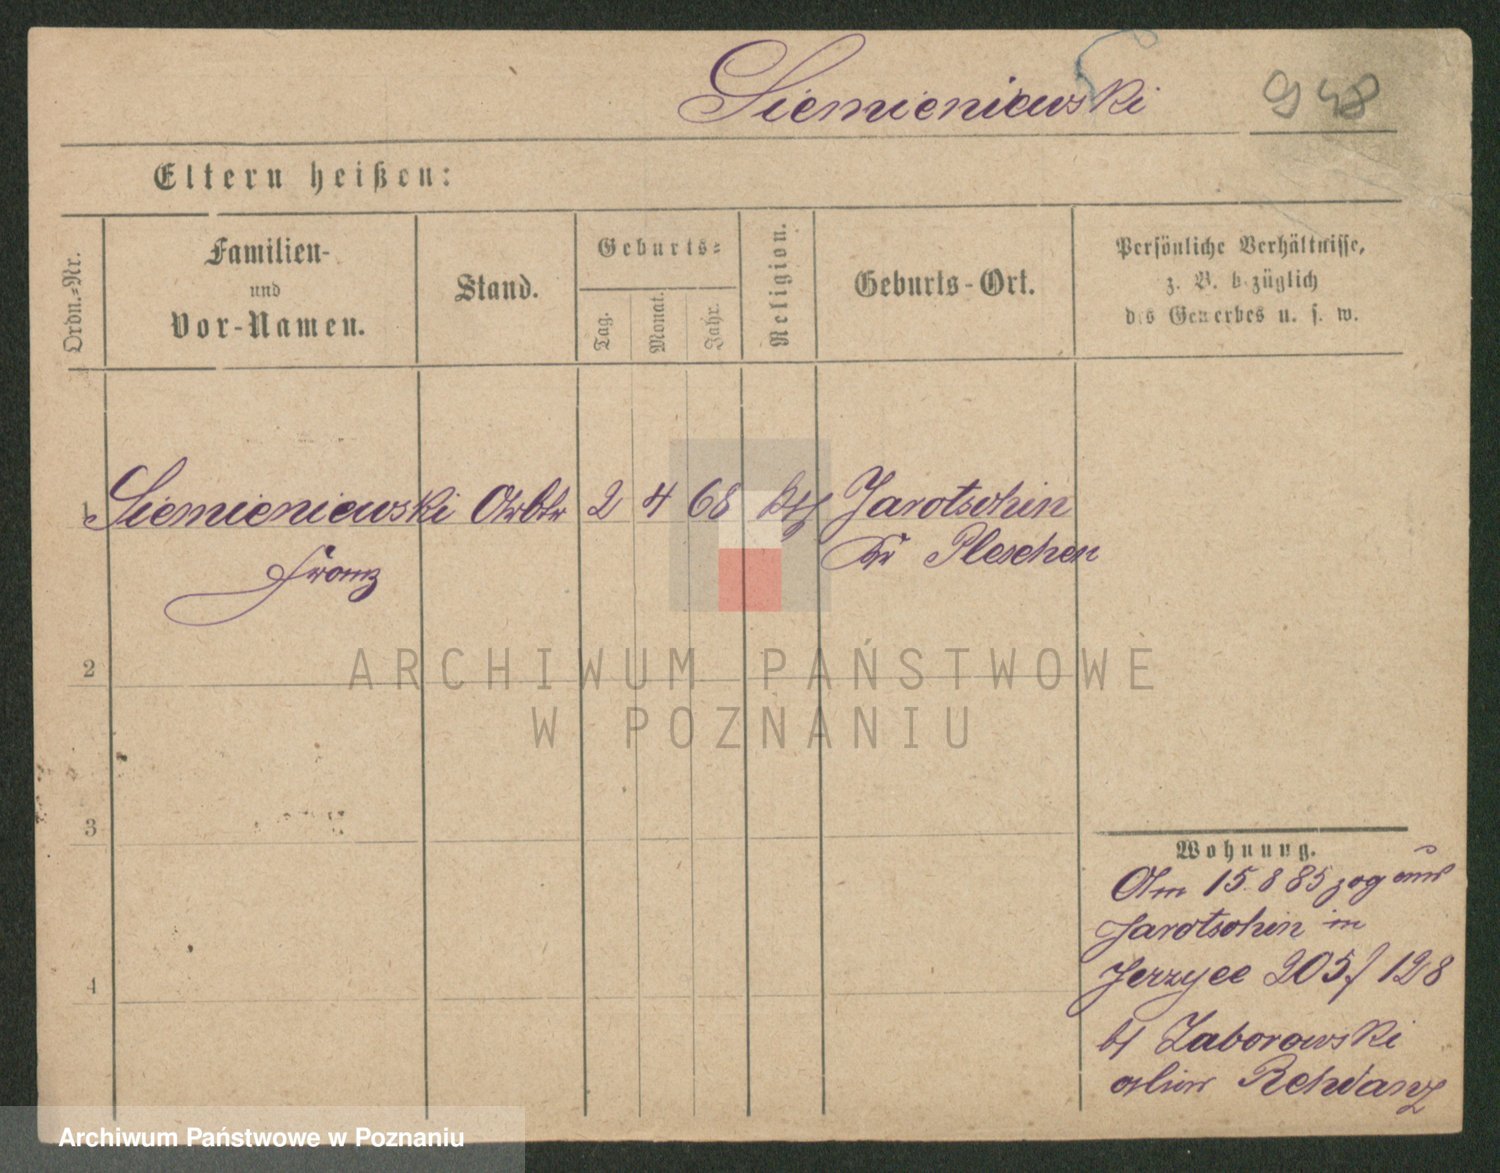 Siemieniewski 948
Eltern heißen:
Ordn.-Nr.
Familien-
und
Vor-Namen.
Stand.
Geburts-
Tag.
Monat.
Jahr.
Religion.
Geburts-Ort.
Persönliche Verhältnisse,
z. B. bezüglich
des Gewerbes u. s. w.
1 Siemieniewski Arbtr 2 4 68 kth Jarotschin
Franz Kr Pleschen
2
3
4
Wohnung.
Am 15.8 85 zog aus
Jarotschin in
Jerzyce 205/128
bf Zaborowski
Rehdanz
ARCHIWUM PAŃSTWOWE
W POZNANIU
Archiwum Państwowe w Poznaniu